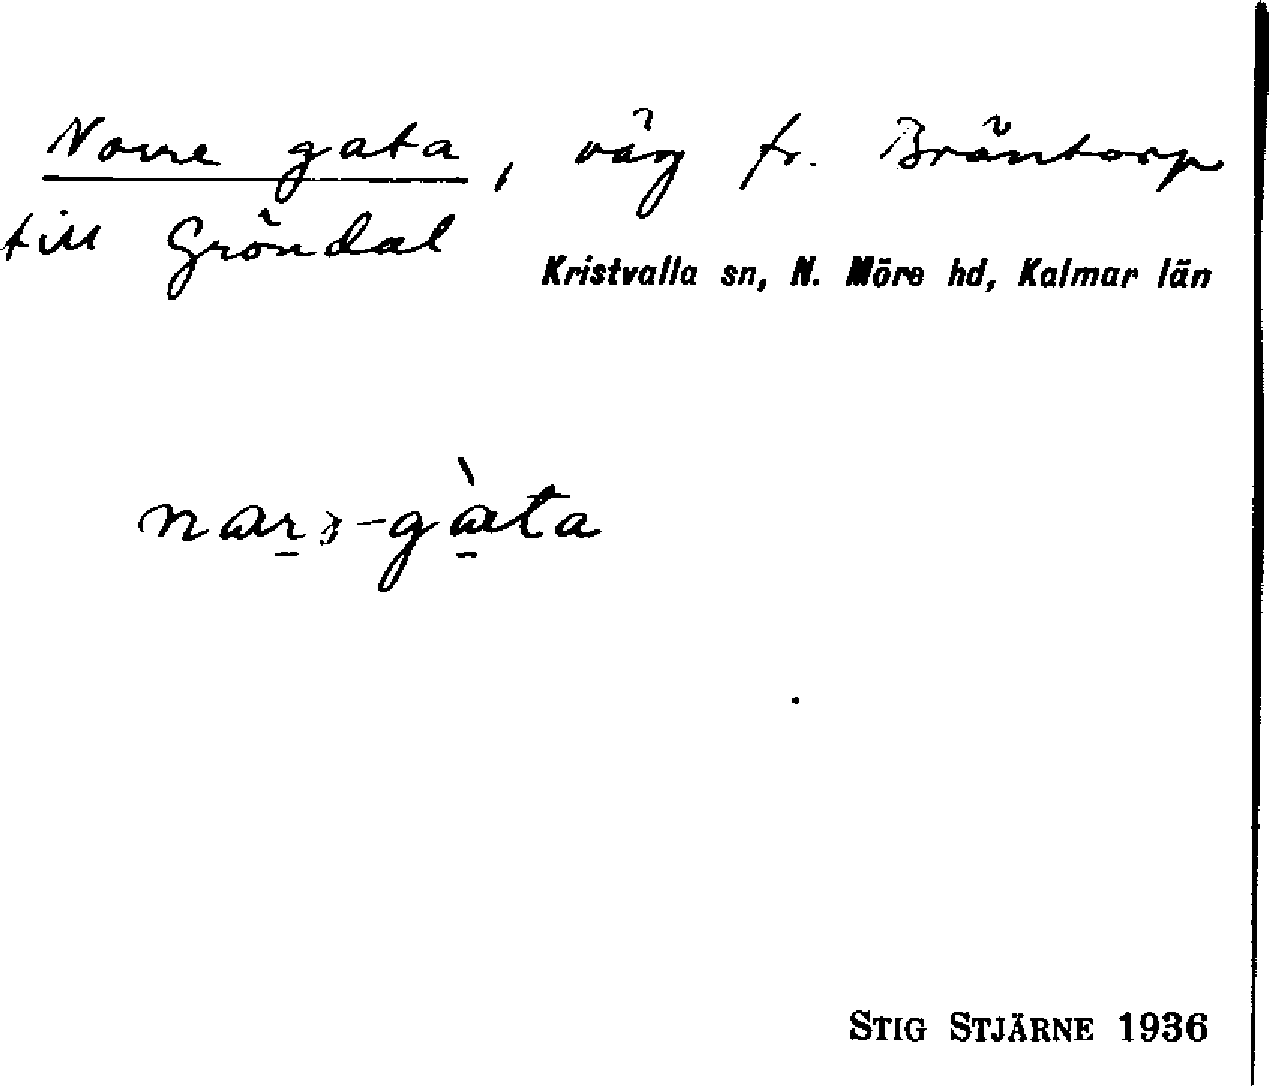 Norre gata, väg fr. Bräntorp
till Gröndal
Kristvalla sn, N. Möre hd, Kalmar län
STIG STJÄRNE 1936